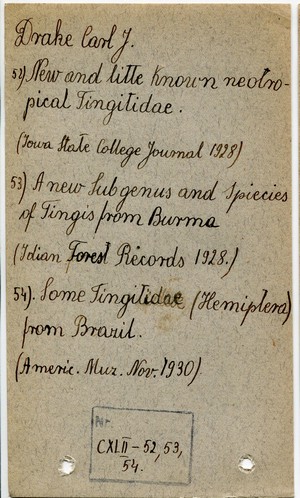 Drake Carl J.
52) New and litte known neotro-
pical Tingitidae.
(Iowa State College Journal 1928)
53) A new Subgenus and Spiecies
of Tingis from Burma
(Idian Forest Records 1928.)
54). Some Tingitidae (Hemiptera)
from Brazil.
(Americ. Muz. Nov. 1930).
Nr.
CXLII - 52, 53,
54.